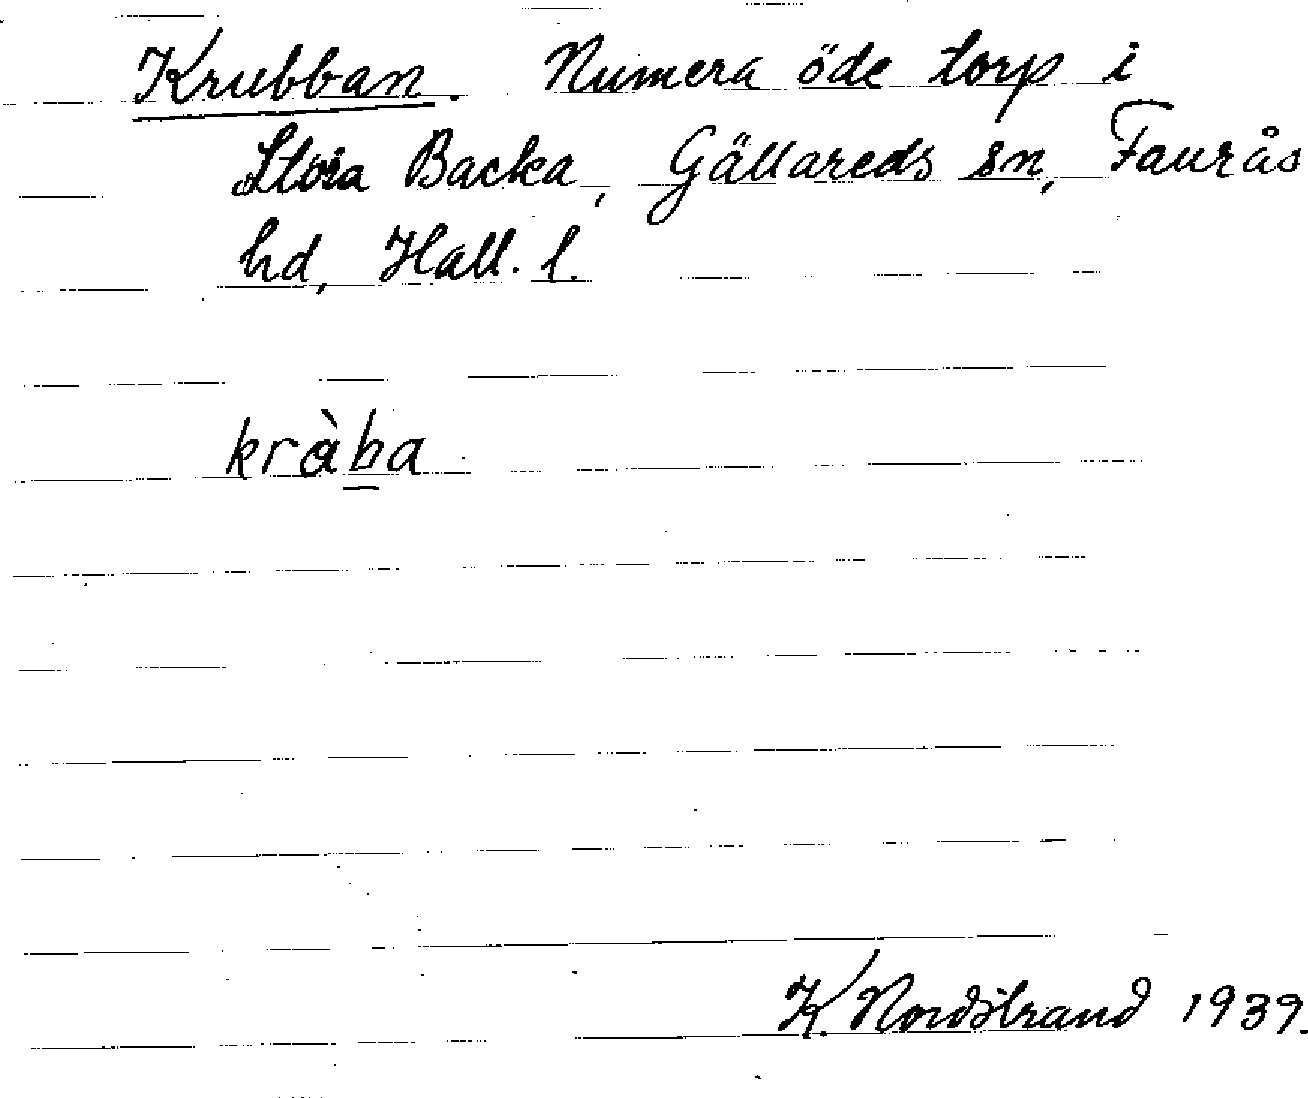 Krubban. Numera öde torp i
Stora Backa, Gällareds sn, Faurås
hd, Hall. l.
kràba
K. Nordstrand 1939.